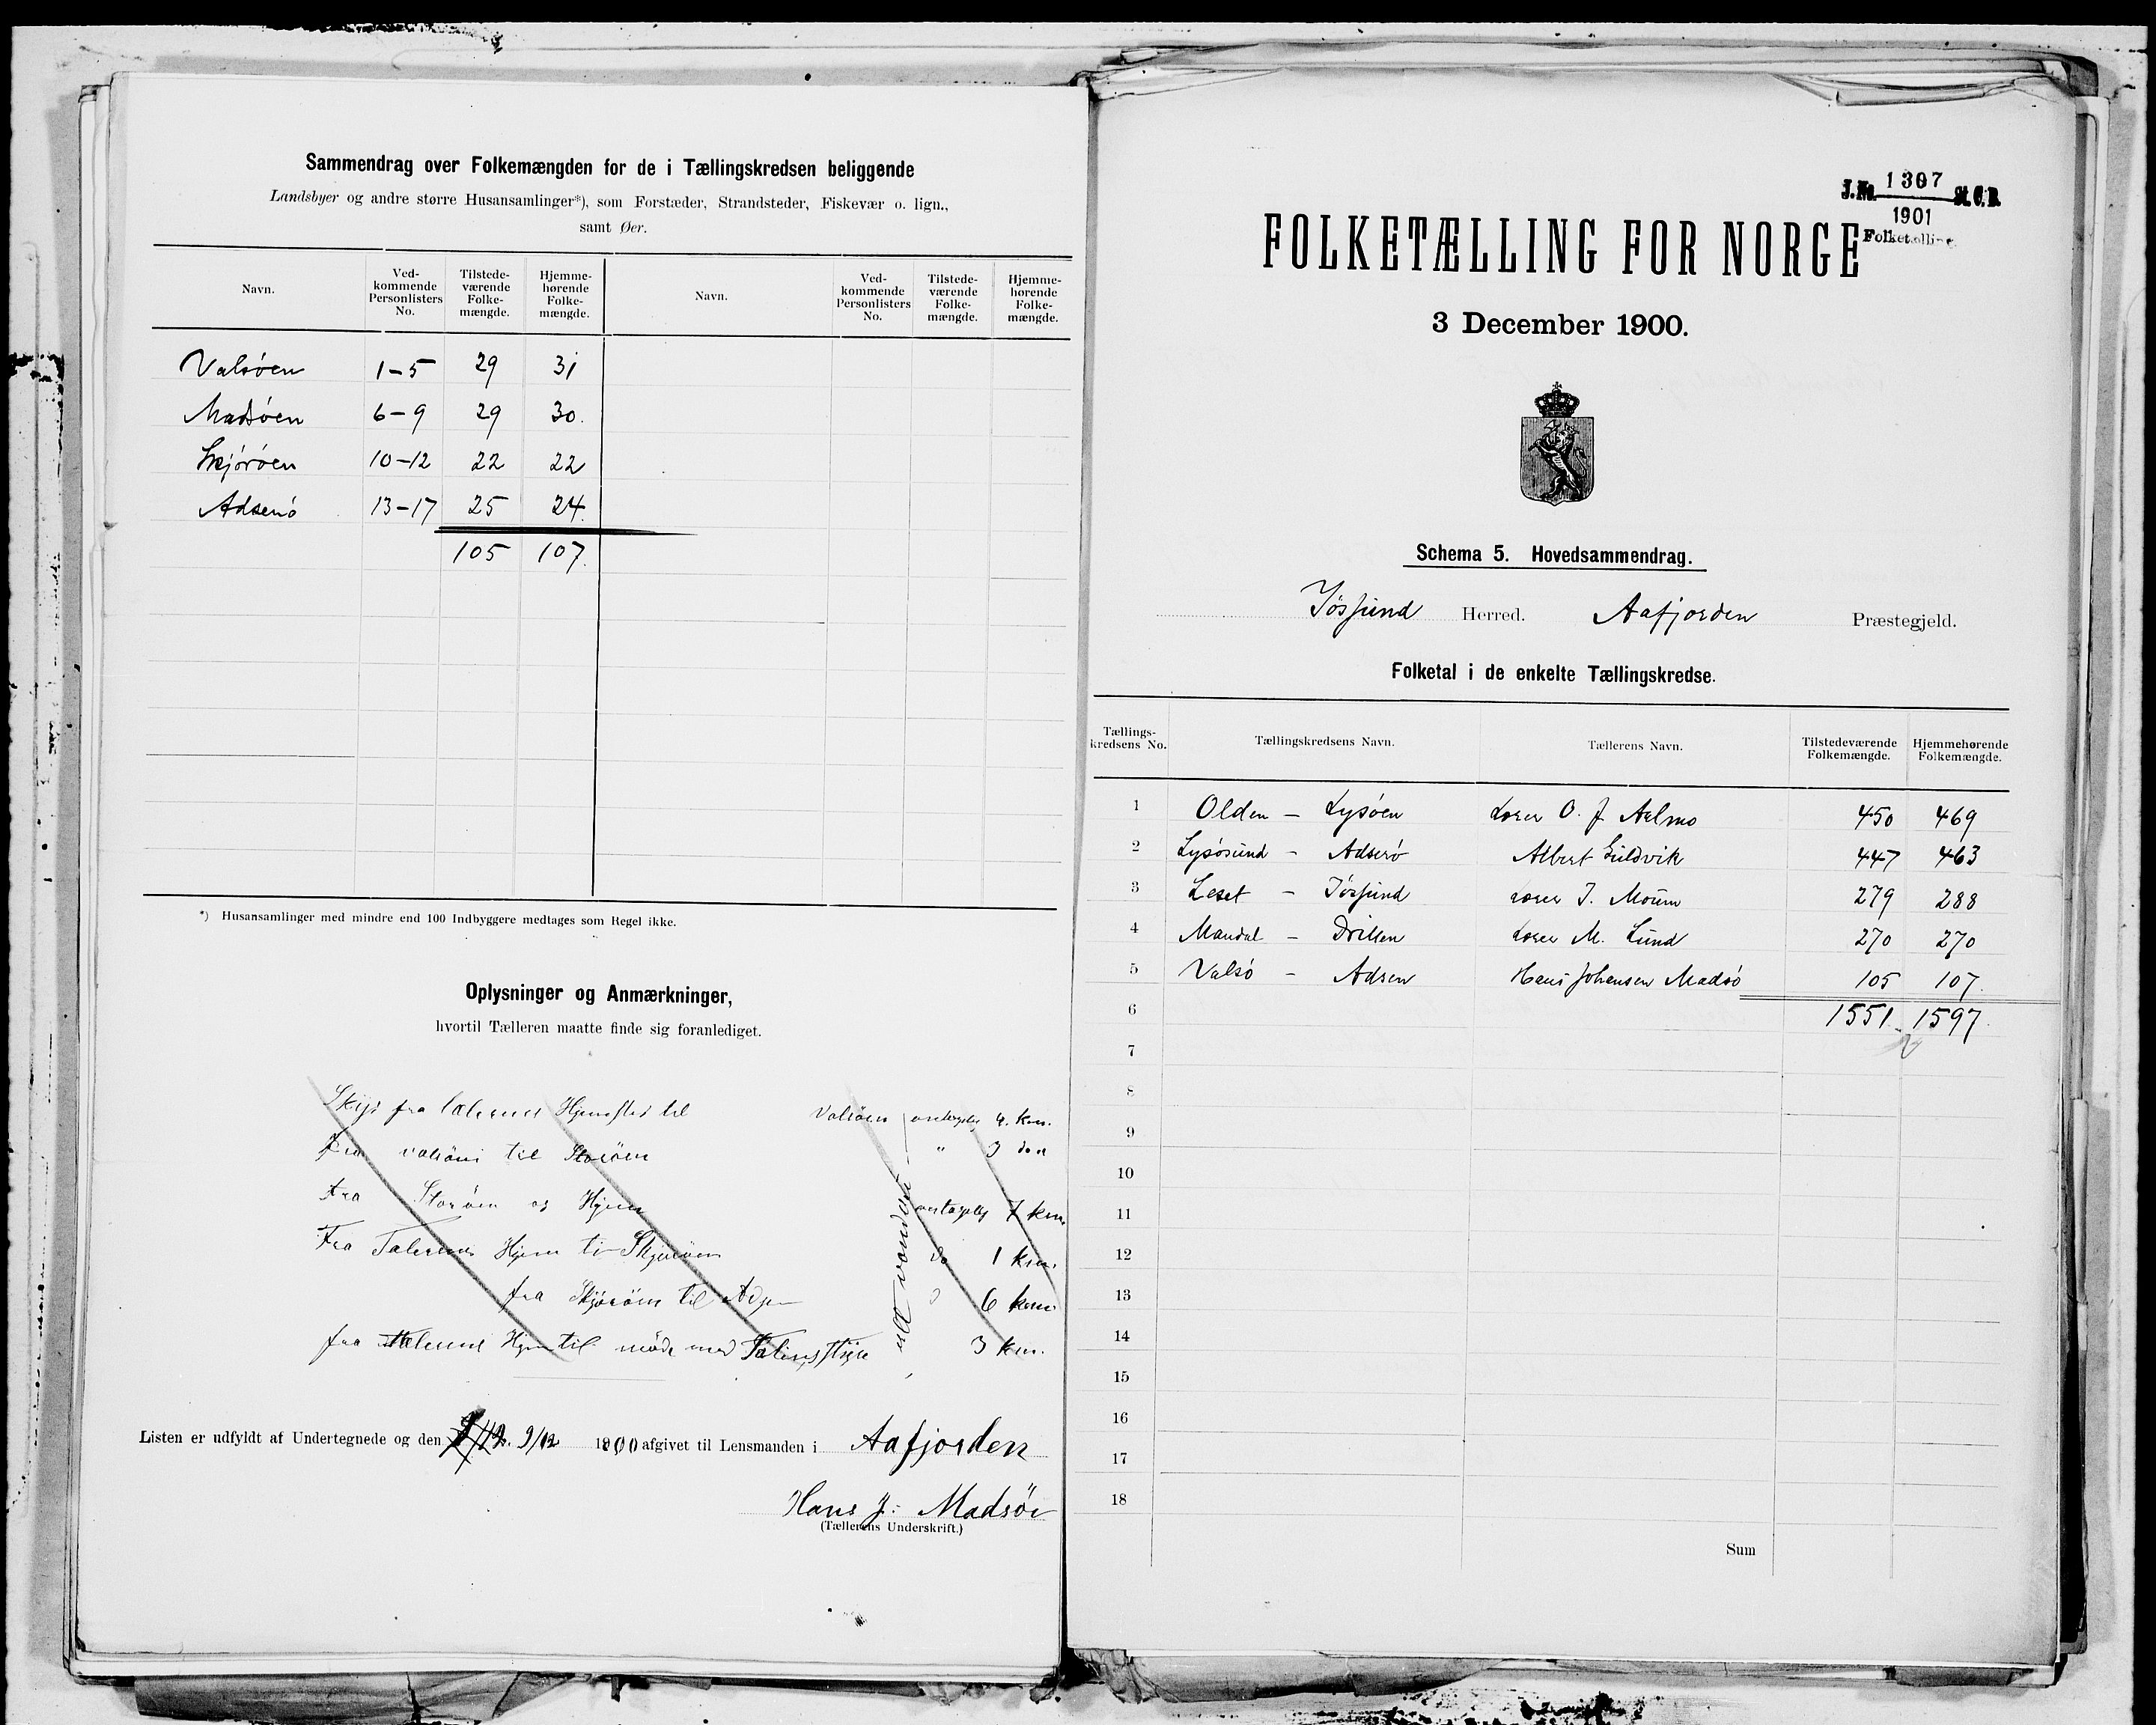 Sammendrag over Folkemængden for de i Tællingskredsen beliggende
Landsbyer og andre større Husansamlinger*), som Forstæder, Strandsteder, Fiskevær o. lign.,
samt Øer.
Navn. Ved-kommende Personlisters No. Tilstede-værende Folke-mængde. Hjemme-hørende Folke-mængde. Navn. Ved-kommende Personlisters No. Tilstede-værende Folke-mængde. Hjemme-hørende Folke-mængde.
Valsöen 1-5 29 31
Madsöen 6-9 29 30.
Skjöröen 10-12 22 22
Adserö 13-17 25 24.
105 107.
*) Husansamlinger med mindre end 100 Indbyggere medtages som Regel ikke.
Oplysninger og Anmærkninger,
hvortil Tælleren maatte finde sig foranlediget.
fra Hjemsted til Valsöen 4. km.
Fra til Storöen " 3
Fra Storöen og Hjem 7 km
Fra Hjem Skjöröen do 1 km.
fra Skjöröen til 6 km
fra Hjem til möde med 3 km.
Listen er udfyldt af Undertegnede og den 9/12 1900 afgivet til Lensmanden i Aafjorden
Hans J. Madsöe
(Tællerens Underskrift.)
J.No. 1307 St. C. B.
1901
Folketælling
FOLKETÆLLING FOR NORGE
3 December 1900.
Schema 5. Hovedsammendrag.
Jössund Herred. Aafjorden Præstegjeld.
Folketal i de enkelte Tællingskredse.
Tællings-kredsens No. Tællingskredsens Navn. Tællerens Navn. Tilstedeværende Folkemængde. Hjemmehørende Folkemængde.
1 Olden - Lysöen Lærer O. J. Aalmo 450 469
2 Lysösund - Adserö Albert Guldvik 447 463
3 Leset - Jössund Lærer J. Moum 279 288
4 Mandal - Lærer M. Lund 270 270
5 Valsö - Adsen Hans Johansen Madsö 105 107.
6 1551 1597.
7
8
9
10
11
12
13
14
15
16
17
18
Sum